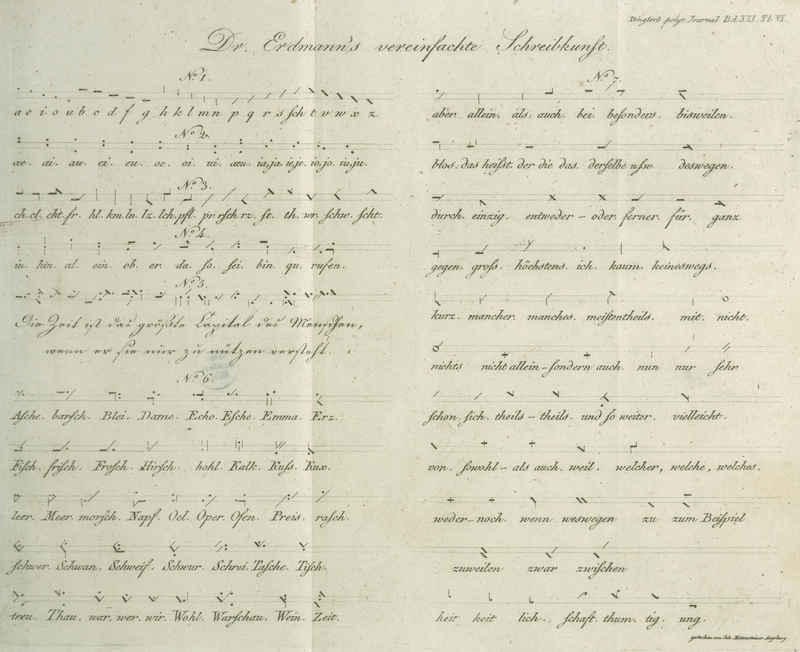 Dinglers polyt. Journal Bd. XXI. Tb. VI.
Dr. Erdmann's vereinfachte Schreibkunst.
No. 1.
a e i o u b c d f g h k l m n p q r s sch t v w x z
No. 2.
ae. ai. au. ei. eu. oe. oi. ui. äu. ia,ja. ie,je. io,jo. iu,ju.
No. 3.
ch. cl. cht. fr. hl. km. ln. lz. lch. pfl. pr. rsch. rz. st. th. wr. schw. scht.
No. 4.
in. hin. al. ein. ob. er. da. so. sei. bin. qu. rufen.
No. 5.
Die Zeit ist das größte Capital des Menschen,
wenn er sie nur zu nützen versteht.
No. 6.
Asche. barsch. Blei. Dame. Echo. Esche. Emma. Erz.
Fisch. frisch. Frosch. Hirsch. hohl. Kalk. Kuss. Kux.
leer. Meer. morsch. Napf. Oel. Oper. Ofen. Preis. rasch.
schwer. Schwan. Schweif. Schwur. Schrei. Tasche. Tisch.
treu. Thau. war. wer. wir. Wohl. Warschau. Wein. Zeit.
No. 7.
aber. allein. als. auch. bei. besonders. bisweilen.
blos. das heisst. der die das. derselbe usw. deswegen.
durch. einzig. entweder – oder. ferner. für. ganz
gegen. gross. höchstens. ich. kaum. keineswegs.
kurz. mancher. manches. meistentheils. mit. nicht.
nichts nicht allein – sondern auch. nun nur sehr
schon. sich. theils – theils. und so weiter. vielleicht.
von. sowohl – als auch. weil. welcher, welche, welches.
weder – noch. wenn weswegen zu zum Beispiel
zuweilen zwar zwischen
heit keit lich. schaft. thum. tig. ung.